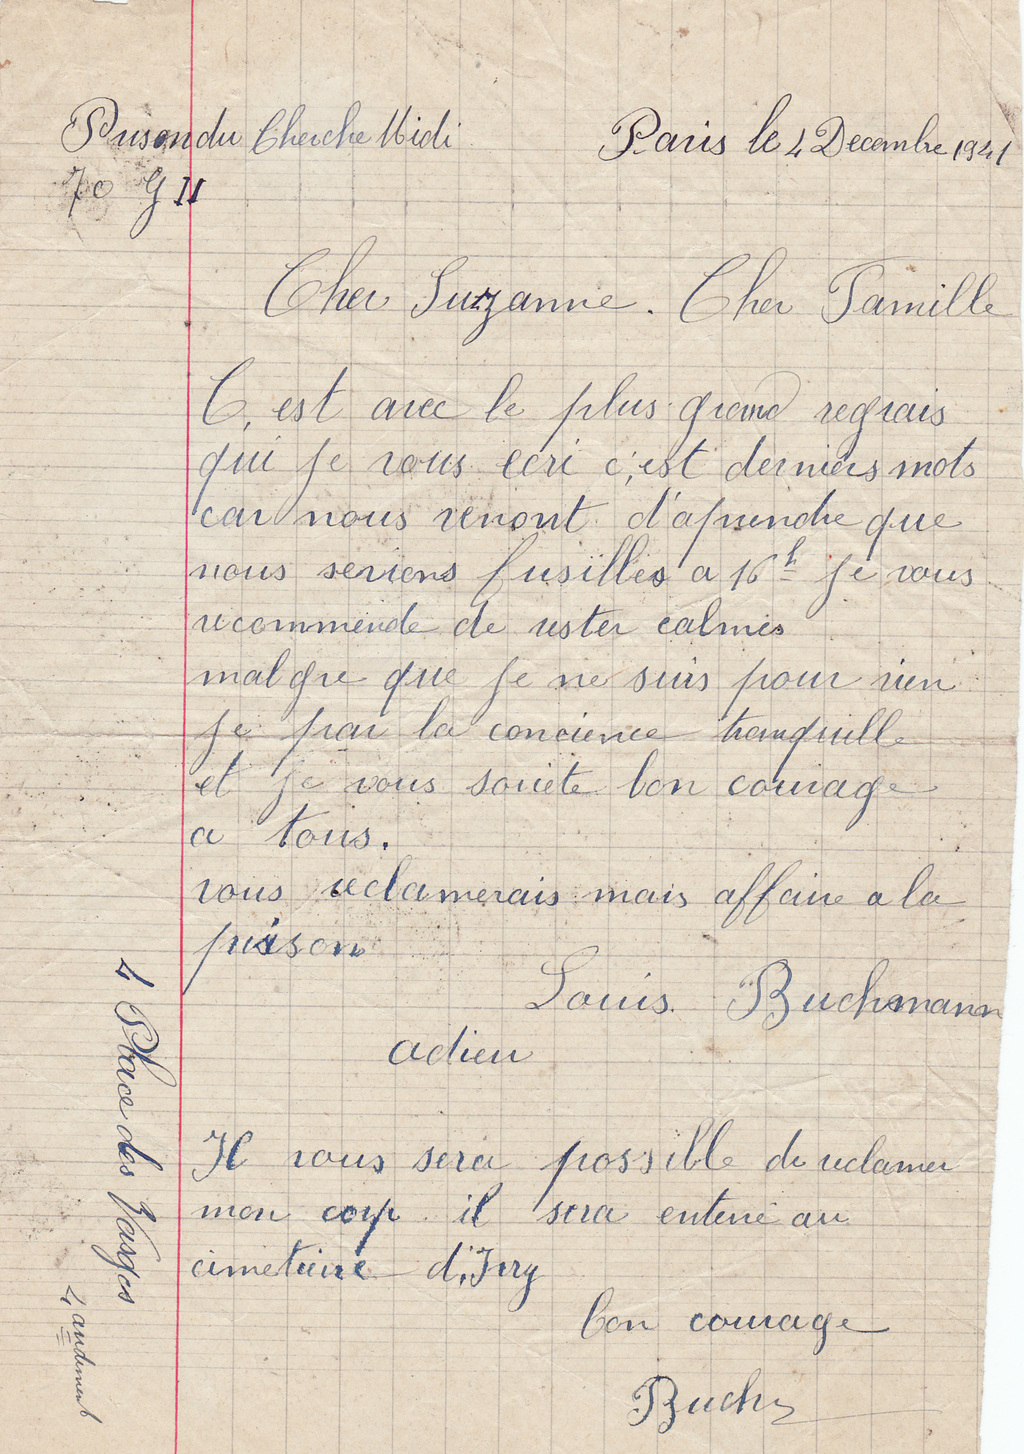 Prison du Cherche Midi
Paris le 4 Decembre 1941
70 G II
Cher Suzanne. Cher Famille
C, est avec le plus grand regrais
qui je vous ecri c',est derniers mots
car nous venont d'aprendre que
nous seriens fusillés a 16h je vous
recommende de rester calmes
malgre que je ne suis pour rien
je par la concience tranquille
et je vous souete bon courage
a tous.
vous reclamerais mais affaire a la
prison
Louis. Buchmann
adieu
Il vous sera possible de reclamer
mon corp il sera enterré au
cimetiere d',Ivry
bon courage
Buch
4 Place des Vosges
4 andement